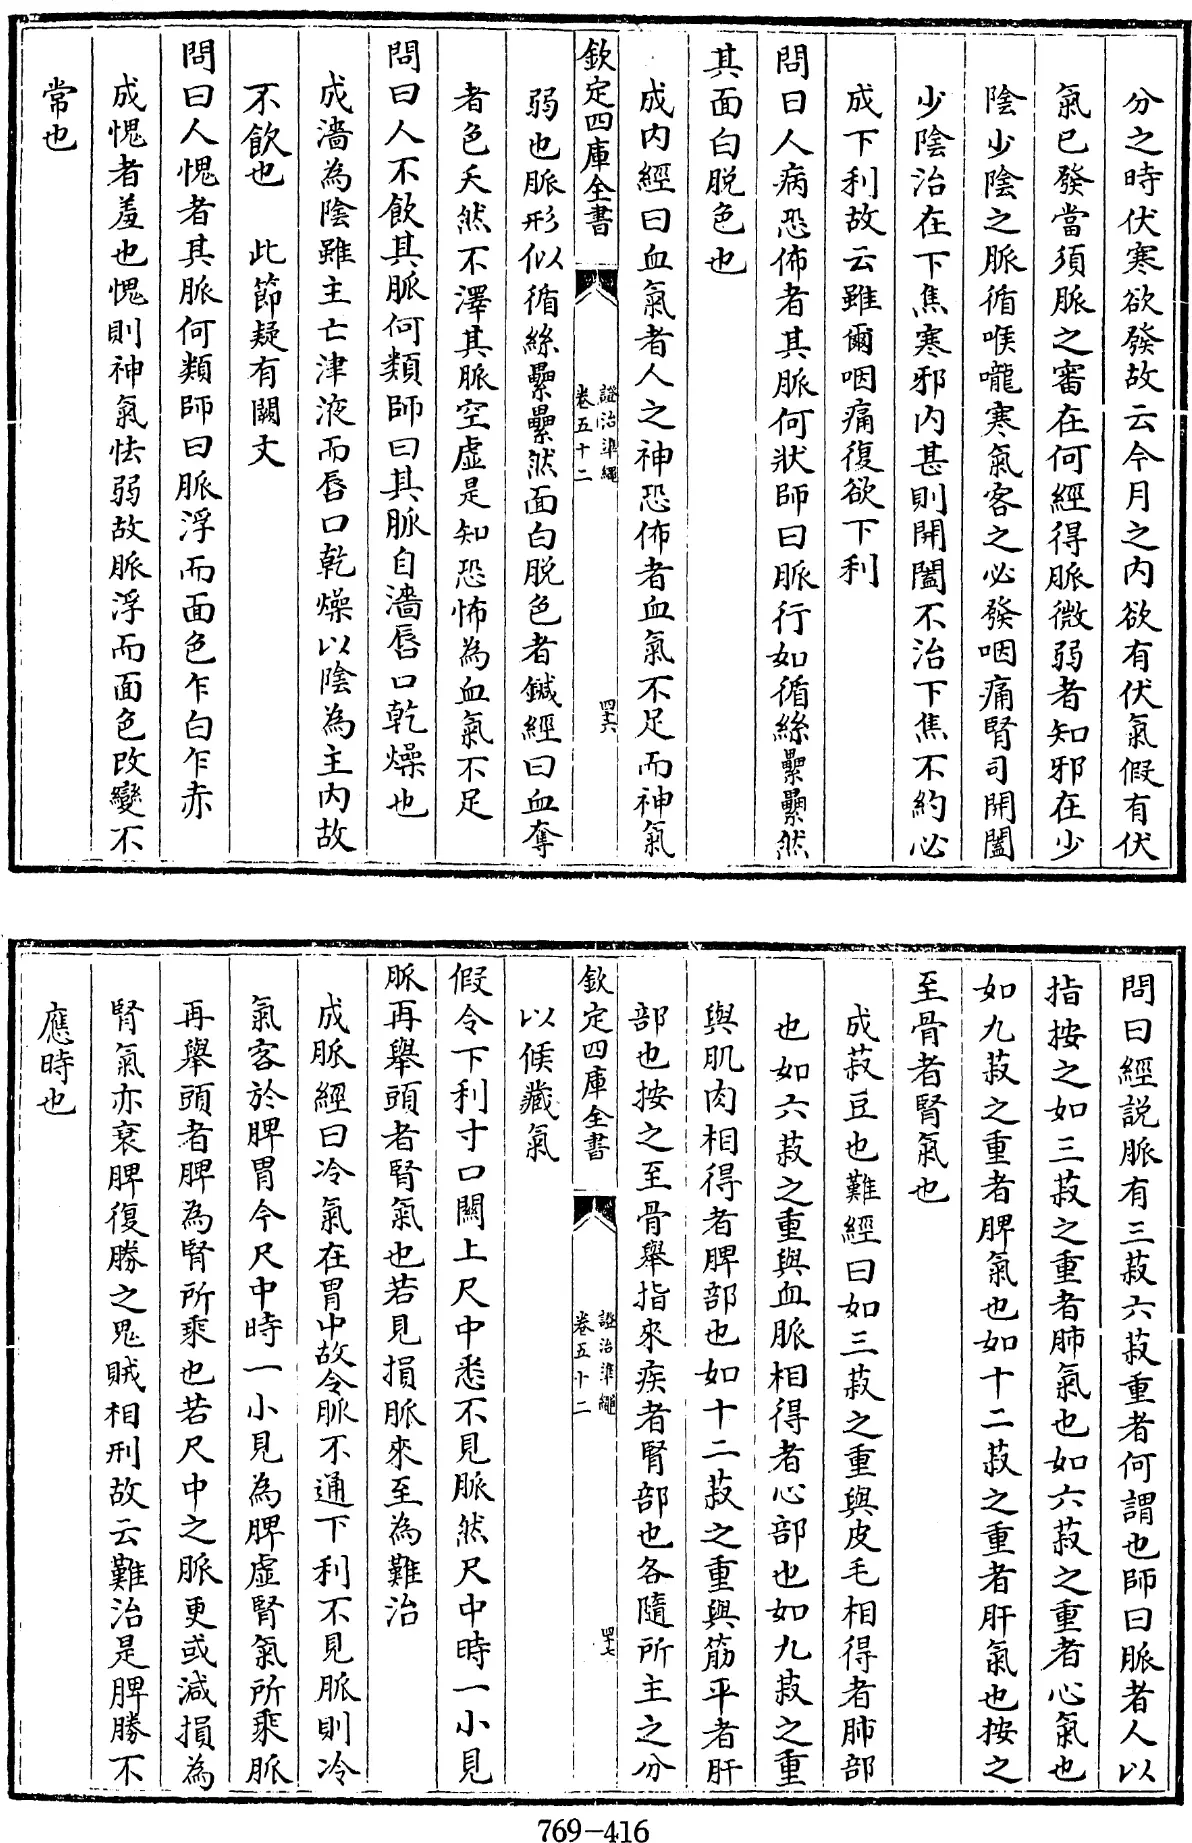 分之時伏寒欲發故云今月之內欲有伏氣假有伏
氣已發當須脈之審在何經得脈微弱者知邪在少
陰少陰之脈循喉嚨寒氣客之必發咽痛腎司開闔
少陰治在下焦寒邪内甚則開闔不治下焦不約必
成下利故云雖爾咽痛復欲下利
問曰人病恐怖者其脈何狀師曰脈行如循絲纍纍然
其面白脱色也
成内經曰血氣者人之神恐怖者血氣不足而神氣
欽定四庫全書
證治準繩
卷五十二
四十六
弱也脈形似循絲纍纍然面白脱色者鍼經曰血奪
者色夭然不澤其脈空虛是知恐怖為血氣不足
問曰人不飲其脈何類師曰其脈自濇唇口乾燥也
成濇為陰雖主亡津液而唇口乾燥以陰為主内故
不飲也 此節疑有闕文
問曰人愧者其脈何類師曰脈浮而面色乍白乍赤
成愧者羞也愧則神氣怯弱故脈浮而面色改變不
常也
問曰經説脈有三菽六菽重者何謂也師曰脈者人以
指按之如三菽之重者肺氣也如六菽之重者心氣也
如九菽之重者脾氣也如十二菽之重者肝氣也按之
至骨者腎氣也
成菽豆也難經曰如三菽之重與皮毛相得者肺部
也如六菽之重與血脈相得者心部也如九菽之重
與肌肉相得者脾部也如十二菽之重與筋平者肝
部也按之至骨舉指來疾者腎部也各隨所主之分
欽定四庫全書
證治準繩
卷五十二
四十七
以候藏氣
假令下利寸口關上尺中悉不見脈然尺中時一小見
脈再舉頭者腎氣也若見損脈來至為難治
成脈經曰冷氣在胃中故令脈不通下利不見脈則冷
氣客於脾胃今尺中時一小見為脾虛腎氣所乘脈
再舉頭者脾為腎所乘也若尺中之脈更或減損為
腎氣亦衰脾復勝之鬼賊相刑故云難治是脾勝不
應時也
769-416